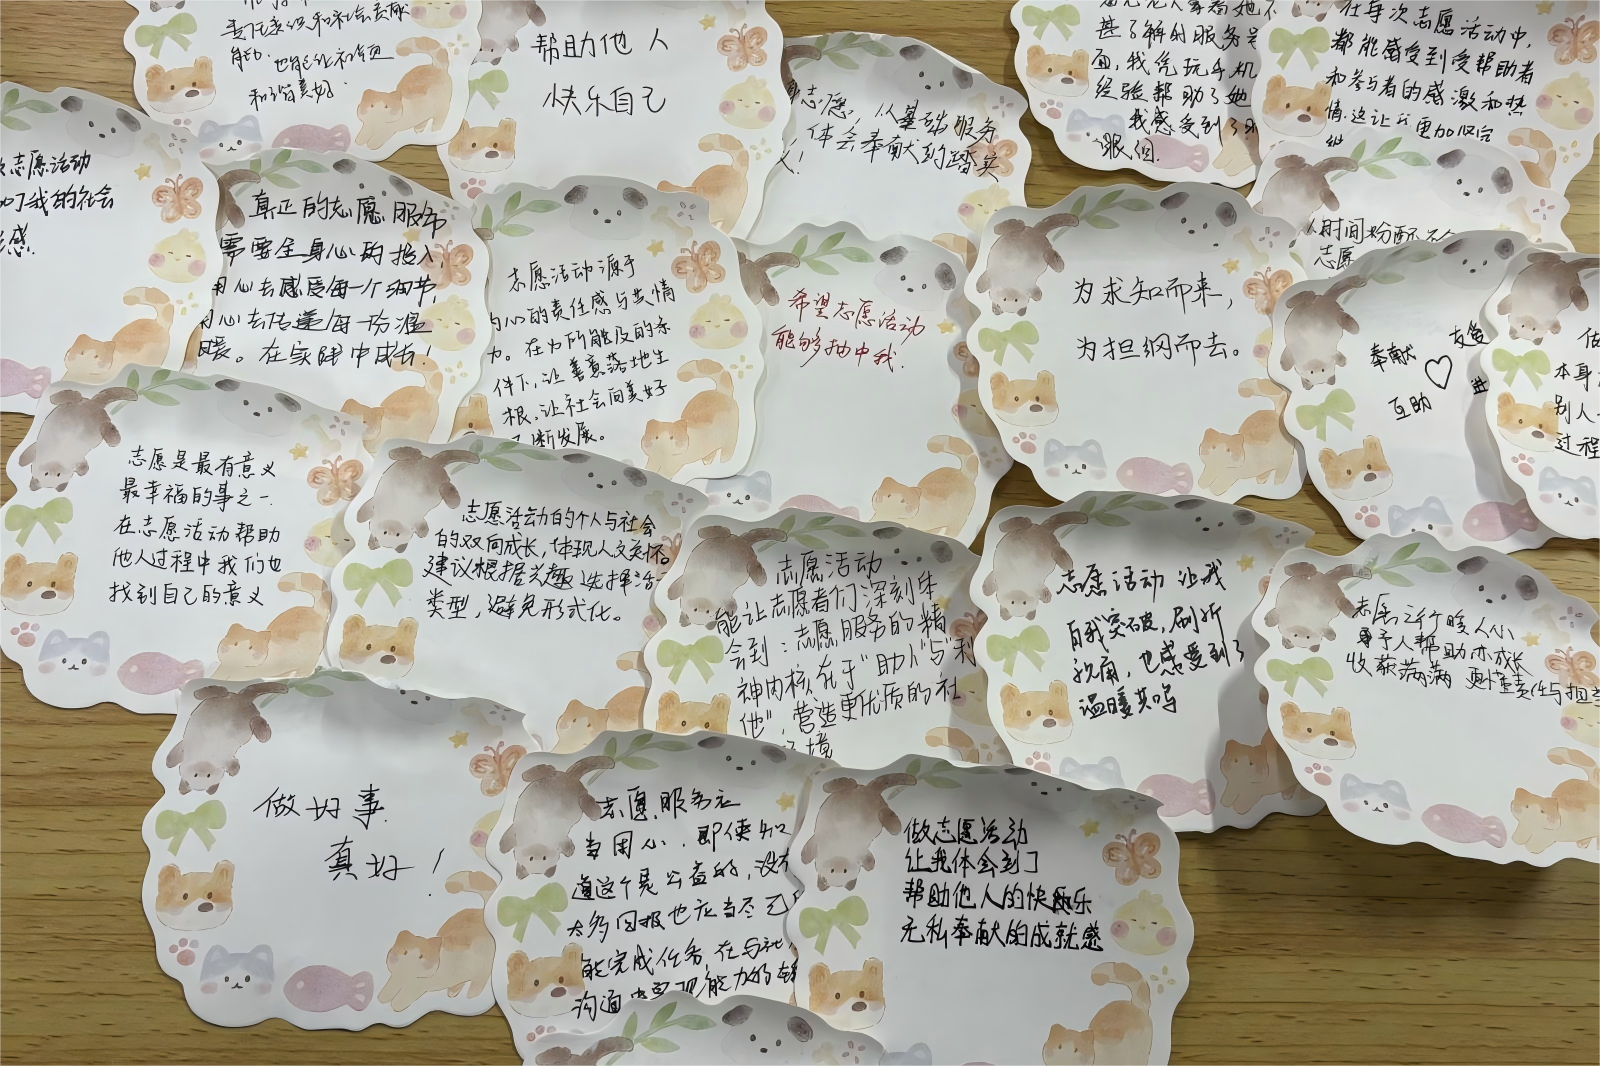 和社会贡献
能力.也能让社会更
和谐美好.
帮助他人
快乐自己
志愿，从基础服务
体会奉献的踏实
甚了解的服务
面,我凭玩手机
经验帮助了她
我感受到了
在每次志愿活动中,
都能感受到受帮助者
和参与者的感激和热
情.这让我更加坚定
志愿活动
了我的社会
感.
真正的志愿服务
需要全身心的投入,
用心去感受每一个细节,
用心去传递每一份温
暖。在实践中成长!
志愿活动源于
内心的责任感与共情
力。在力所能及的条
件下,让善意落地生
根,让社会向美好
不断发展。
希望志愿活动
能够抽中我.
为求知而来,
为担纲而去。
时间分配
志愿
奉献
友爱
互助
进
做
本身
别人
过程
志愿是最有意义
最幸福的事之一.
在志愿活动帮助
他人过程中我们也
找到自己的意义
志愿活动的个人与社会
的双向成长,体现人文关怀
建议根据兴趣选择活
类型,避免形式化。
志愿活动
能让志愿者们深刻体
会到:志愿服务的精
神内核在于"助人"与"利
他",营造更优质的社
环境
志愿活动让我
自我突破,刷新
视角,也感受到了
温暖共鸣
志愿之行暖人心
予人帮助亦成长
收获满满 更懂责任与担当
做好事
真好!
志愿服务应
当用心.即使知
道这个是公益的,没有
太多回报也应当尽己
能完成任务,在与社
沟通中实现能力的
做志愿活动
让我体会到了
帮助他人的快乐
无私奉献的成就感